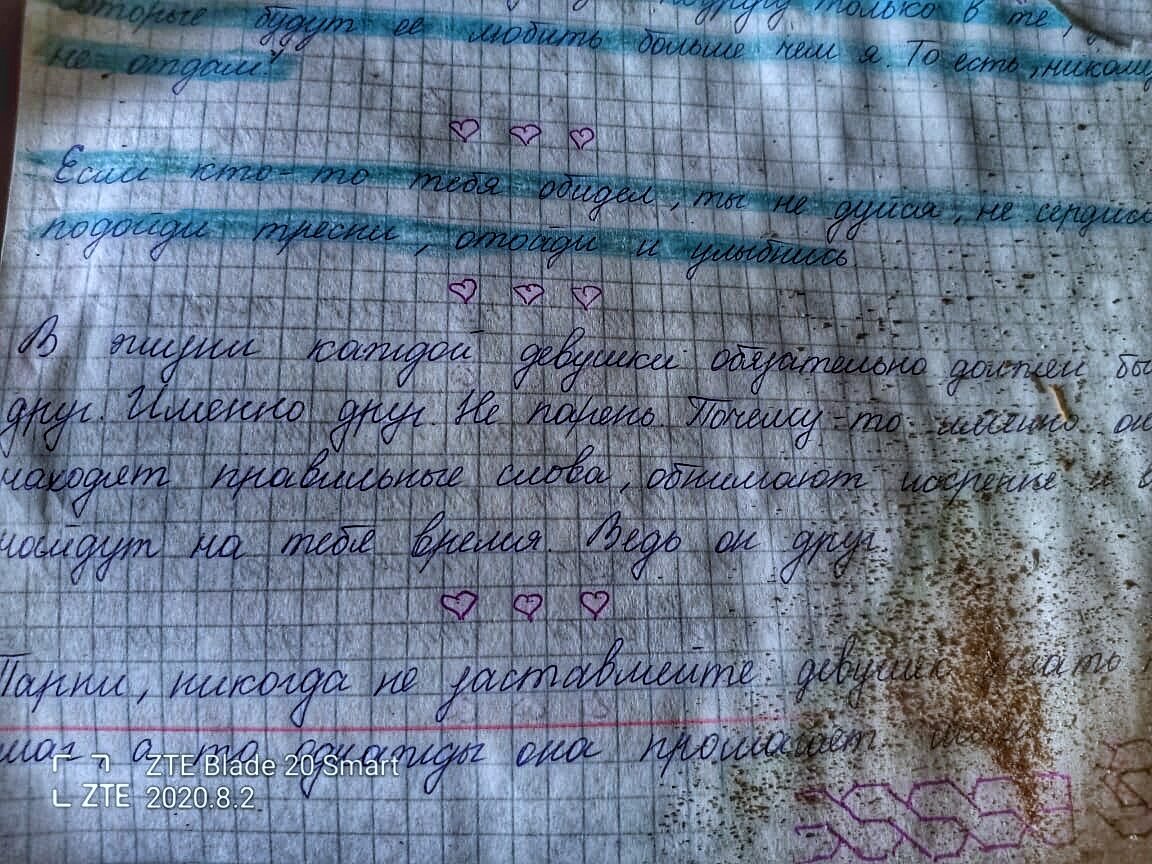 которые будут ее любить больше чем я. То есть, никому
не отдам!
Если кто-то тебя обидел, ты не дуйся, не сердись
подойди тресни, отойди и улыбнись
В жизни каждой девушки обязательно должен бы
друг. Именно друг. Не парень. Почему-то именно он
находят правильные слова, обнимают искренне и в
найдут на тебе время. Ведь он друг.
Парни, никогда не заставляйте девушку
шаг а то однажды она прошагает
ZTE Blade 20 Smart
ZTE 2020.8.2